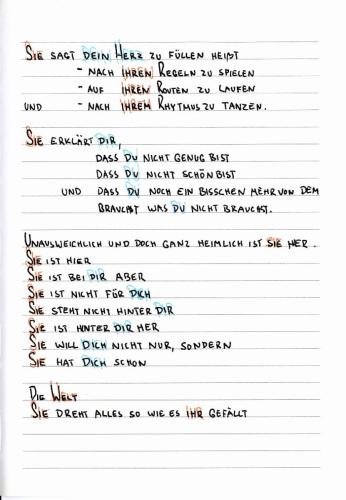 SIE SAGT DEIN HERZ ZU FÜLLEN HEIßT
- NACH IHREN REGELN ZU SPIELEN
- AUF IHREN ROUTEN ZU LAUFEN
UND - NACH IHREM RHYTMUS ZU TANZEN.
SIE ERKLÄRT DIR,
DASS DU NICHT GENUG BIST
DASS DU NICHT SCHÖN BIST
UND DASS DU NOCH EIN BISSCHEN MEHR VON DEM
BRAUCHST WAS DU NICHT BRAUCHST.
UNAUSWEICHLICH UND DOCH GANZ HEIMLICH IST SIE HIER.
SIE IST HIER
SIE IST BEI DIR ABER
SIE IST NICHT FÜR DICH
SIE STEHT NICHT HINTER DIR
SIE IST HINTER DIR HER
SIE WILL DICH NICHT NUR, SONDERN
SIE HAT DICH SCHON
DIE WELT
SIE DREHT ALLES SO WIE ES IHR GEFÄLLT